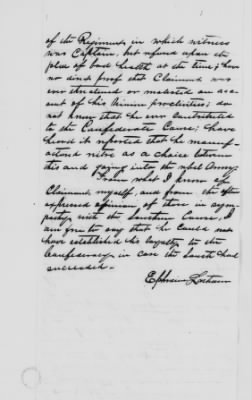 of the Regiment in which witness
was Captain, but refused upon the
plea of bad health at the time; have
no direct proof that Claimant was
ever threatened or molested on acc
ount of his Union proclivities; do
not know that he ever contributed
to the Confederate Cause; have
heard it reported that he manuf
actured nitre as a choice between
this and going into the rebel Army.
From what I know of
Claimant, myself, and from the often
expressed opinion, of those in sym
pathy with the Southern Cause, I
am free to say that he could not
have established his loyalty to the
Confederacy in case the South had
succeeded.
Ephraim